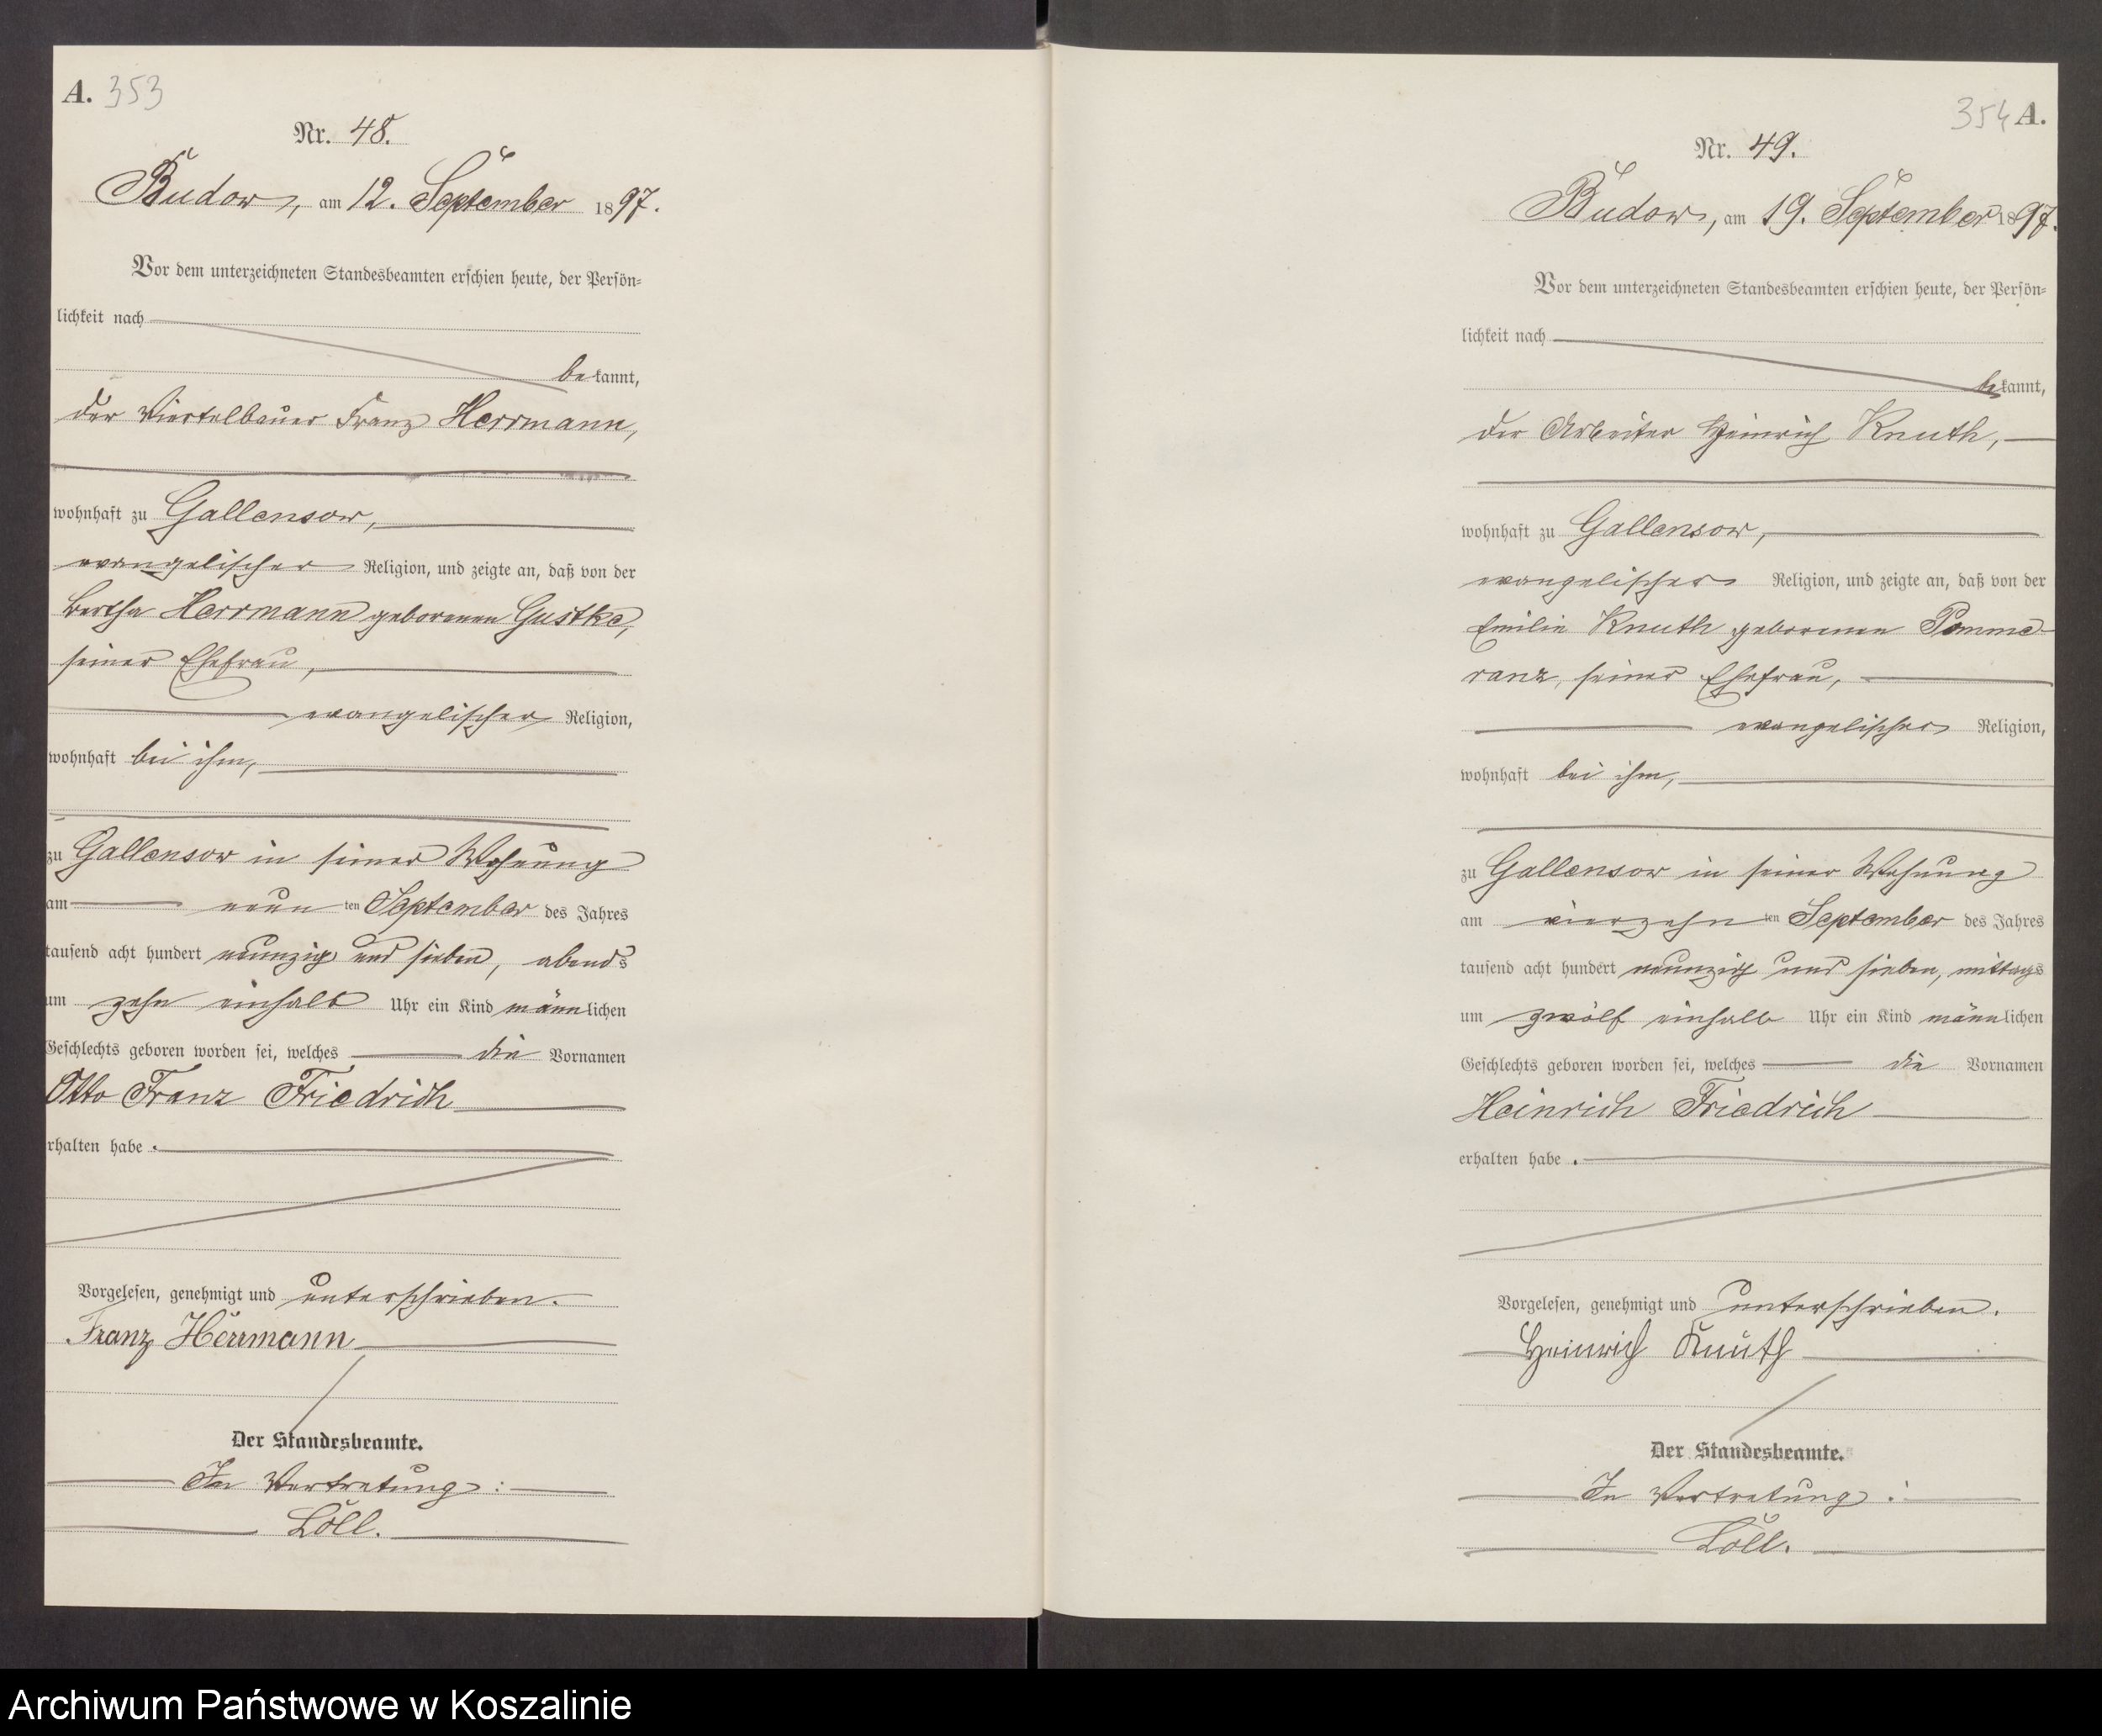 A. 353
Nr. 48.
Budow, am 12. September 1897.
Vor dem unterzeichneten Standesbeamten erschien heute, der Persön-
lichkeit nach
bekannt,
der Viertelbauer Franz Herrmann,
wohnhaft zu Gallensow,
evangelischer Religion, und zeigte an, daß von der
Bertha Herrmann geborenen Gustke,
seiner Ehefrau,
evangelischer Religion,
wohnhaft bei ihm,
zu Gallensow in seiner Wohnung
am neunten September des Jahres
tausend acht hundert neunzig und sieben, abends
um zehn einhalb Uhr ein Kind männlichen
Geschlechts geboren worden sei, welches die Vornamen
Otto Franz Friedrich
erhalten habe.
Vorgelesen, genehmigt und unterschrieben.
Franz Herrmann
Der Standesbeamte.
In Vertretung:
Löll.
354 A.
Nr. 49.
Budow, am 19. September 1897.
Vor dem unterzeichneten Standesbeamten erschien heute, der Persön-
lichkeit nach
bekannt,
der Arbeiter Heinrich Knuth,
wohnhaft zu Gallensow,
evangelischer Religion, und zeigte an, daß von der
Emilie Knuth geborenen Pomme-
ranz, seiner Ehefrau,
evangelischer Religion,
wohnhaft bei ihm,
zu Gallensow in seiner Wohnung
am vierzehnten September des Jahres
tausend acht hundert neunzig und sieben, mittags
um zwölf einhalb Uhr ein Kind männlichen
Geschlechts geboren worden sei, welches die Vornamen
Heinrich Friedrich
erhalten habe.
Vorgelesen, genehmigt und unterschrieben.
Heinrich Knuth
Der Standesbeamte.
In Vertretung:
Löll.
Archiwum Państwowe w Koszalinie